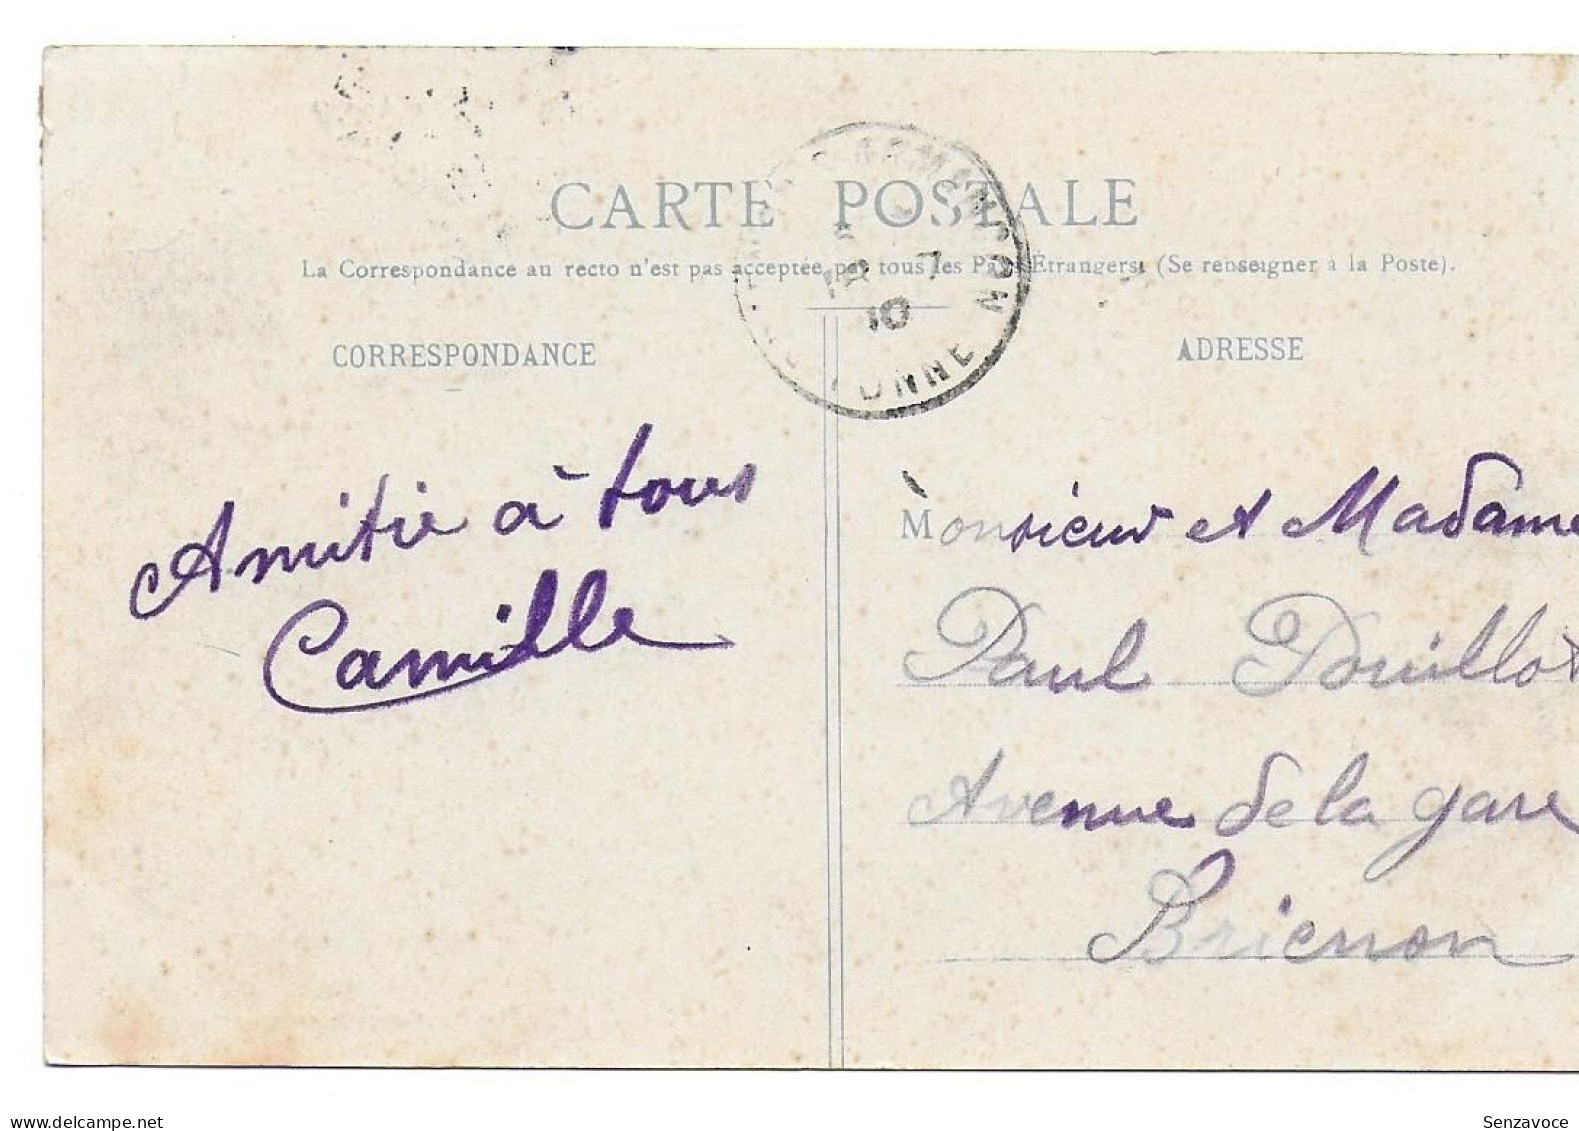 CARTE POSTALE
La Correspondance au recto n'est pas acceptée par tous les Pays Étrangers. (Se renseigner a la Poste).
CORRESPONDANCE
ADRESSE
18 7
10
YONNE
Amitie à tous
Camille
Monsieur et Madame
Paul Pouillot
Avenue de la gare
Brienon
www.delcampe.net
Senzavoce